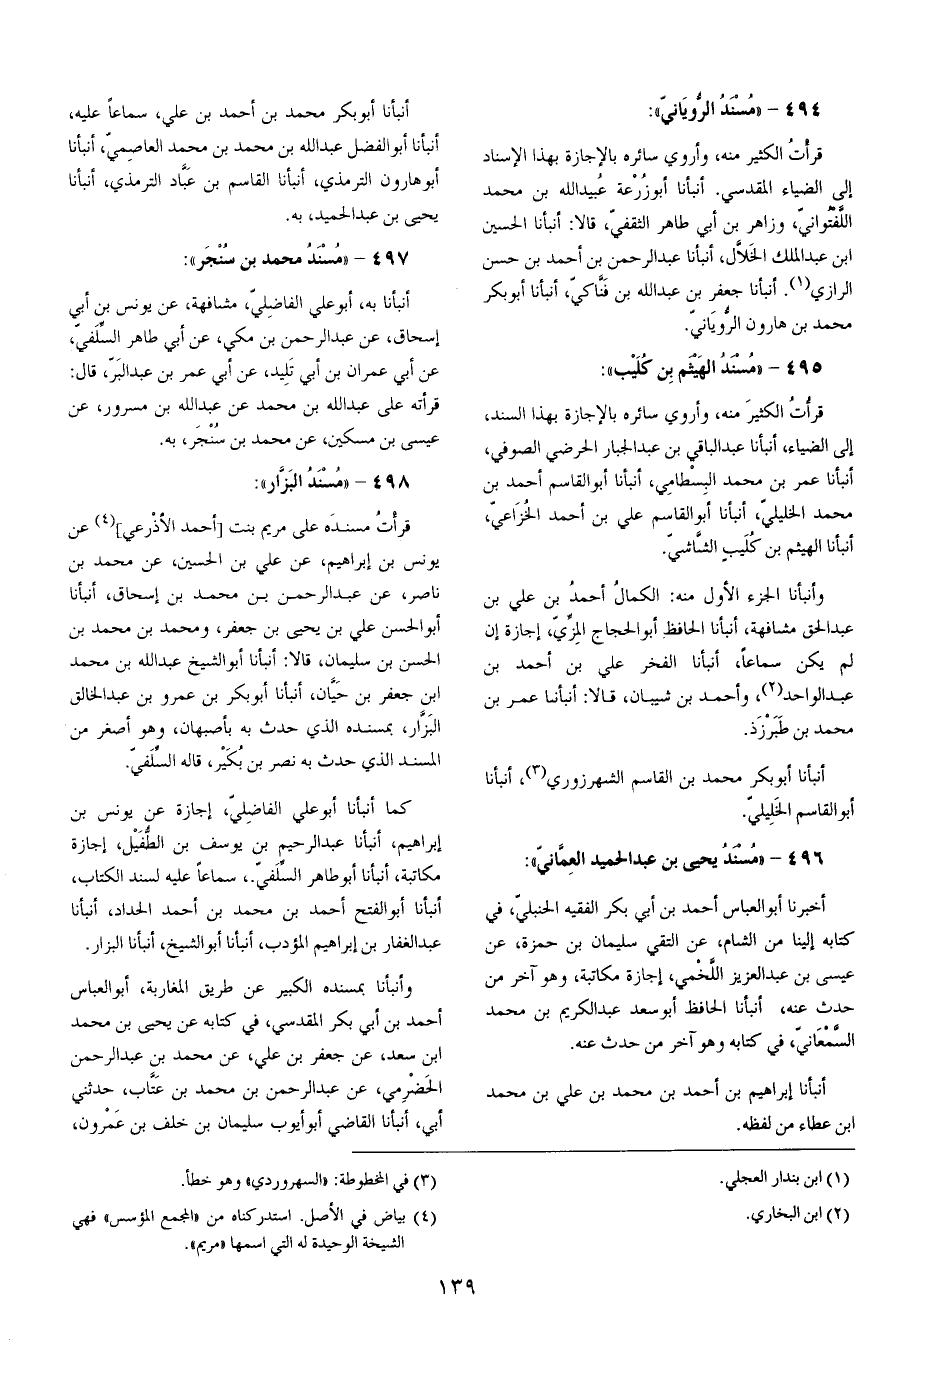 ٤٩٤ - «مُسْنَدُ الرُّويَانيّ»:
قرأتُ الكثير منه، وأروي سائره بالإجازة بهذا الإسناد
إلى الضياء المقدسي. أنبأنا أبوزُرْعة عُبيدالله بن محمد
اللَّفْتُوانيّ، وزاهر بن أبي طاهر الثقفيّ، قالا: أنبأنا الحسين
ابن عبدالملك الخَلاَّل، أنبأنا عبدالرحمن بن أحمد بن حسن
الرازي(١). أنبأنا جعفر بن عبدالله بن فَنَّاكيّ، أنبأنا أبوبكر
محمد بن هارون الرُّويَانيّ.
٤٩٥ - «مُسْنَدُ الهَيْثَم بن كُلَيْب»:
قرأتُ الكثيرَ منه، وأروي سائره بالإجازة بهذا السند،
إلى الضياء، أنبأنا عبدالباقي بن عبدالجبار الحرضي الصوفي،
أنبأنا عمر بن محمد البِسْطامي، أنبأنا أبوالقاسم أحمد بن
محمد الخليليّ، أنبأنا أبوالقاسم علي بن أحمد الخُزَاعيّ،
أنبأنا الهيثم بن كُلَيبٍ الشَّاشيّ.
وأنبأنا الجزء الأول منه: الكمالُ أحمدُ بن علي بن
عبدالحق مشافهة، أنبأنا الحافظ أبوالحجاج المِزِّيّ، إجازة إن
لم يكن سماعاً، أنبأنا الفخر علي بن أحمد بن
عبدالواحد(٢)، وأحمد بن شيبان، قالا: أنبأنا عمر بن
محمد بن طَبَرْزَذ.
أنبأنا أبوبكر محمد بن القاسم الشهرزوري(٣)، أنبأنا
أبوالقاسم الخَلِيليّ.
٤٩٦ - «مُسْنَدُ يحيى بن عبدالحميد العِمَّانيّ»:
أخبرنا أبوالعباس أحمد بن أبي بكر الفقيه الحنبليّ، في
كتابه إلينا من الشام، عن التقي سليمان بن حمزة، عن
عيسى بن عبدالعزيز اللَّخْمي، إجازة مكاتبة، وهو آخر من
حدث عنه، أنبأنا الحافظ أبوسعد عبدالكريم بن محمد
السَّمْعَانيّ، في كتابه وهو آخر من حدث عنه.
أنبأنا إبراهيم بن أحمد بن محمد بن علي بن محمد
ابن عطاء من لفظه.
أنبأنا أبوبكر محمد بن أحمد بن علي، سماعاً عليه،
أنبأنا أبوالفضل عبدالله بن محمد بن محمد العاصميّ، أنبأنا
أبوهارون الترمذي، أنبأنا القاسم بن عَبَّاد الترمذي، أنبأنا
يحيى بن عبدالحميد، به.
٤٩٧ - «مُسْنَدُ محمد بن سُنْجَر»:
أنبأنا به، أبوعلي الفاضليّ، مشافهة، عن يونس بن أبي
إسحاق، عن عبدالرحمن بن مكي، عن أبي طاهر السِّلَفيّ،
عن أبي عمران بن أبي تَلِيد، عن أبي عمر بن عبدالبَرّ، قال:
قرأته على عبدالله بن محمد عن عبدالله بن مسرور، عن
عيسى بن مسكين، عن محمد بن سُنْجَر، به.
٤٩٨ - «مُسْنَدُ البَزَّار»:
قرأتُ مسندَه على مريم بنت [أحمد الأذْرعي](٤) عن
يونس بن إبراهيم، عن علي بن الحسين، عن محمد بن
ناصر، عن عبدالرحمن بن محمد بن إسحاق، أنبأنا
أبوالحسن علي بن يحيى بن جعفر، ومحمد بن محمد بن
الحسن بن سليمان، قالا: أنبأنا أبوالشيخ عبدالله بن محمد
ابن جعفر بن حَيَّان، أنبأنا أبوبكر بن عمرو بن عبدالخالق
البَزَّار، بمسنده الذي حدث به بأصبهان، وهو أصغر من
المسند الذي حدث به نصر بن بُكَيْر، قاله السِّلَفيّ.
كما أنبأنا أبوعلي الفاضِليّ، إجازة عن يونس بن
إبراهيم، أنبأنا عبدالرحيم بن يوسف بن الطُّفَيْل، إجازة
مكاتبة، أنبأنا أبوطاهر السِّلَفيّ.، سماعاً عليه لسند الكتاب،
أنبأنا أبوالفتح أحمد بن محمد بن أحمد الحداد، أنبأنا
عبدالغفار بن إبراهيم المؤدب، أنبأنا أبوالشيخ، أنبأنا البزار.
وأنبأنا بمسنده الكبير عن طريق المغاربة، أبوالعباس
أحمد بن أبي بكر المقدسي، في كتابه عن يحيى بن محمد
ابن سعد، عن جعفر بن علي، عن محمد بن عبدالرحمن
الحَضْرمي، عن عبدالرحمن بن محمد بن عَتَّاب، حدثني
أبي، أنبأنا القاضي أبوأيوب سليمان بن خلف بن عَمْرون،
(١) ابن بندار العجلي.
(٢) ابن البخاري.
(٣) في المخطوطة: «السهروردي» وهو خطأ.
(٤) بياض في الأصل. استدركناه من «المجمع المؤسس» فهي
الشيخة الوحيدة له التي اسمها «مريم».
١٣٩